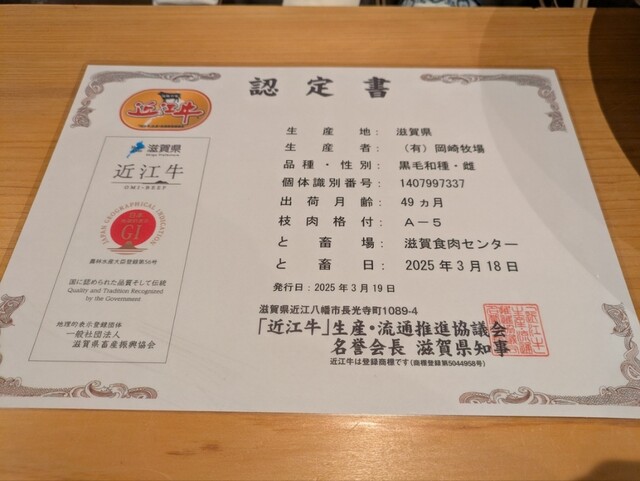 認定書
近江牛
滋賀県
Shiga Prefecture
近江牛
OMI-BEEF
JAPAN GEOGRAPHICAL INDICATION
GI
農林水産大臣登録第56号
国に認められた品質そして伝統
Quality and Tradition Recognized
by the Government
地理的表示登録団体
一般社団法人
滋賀県畜産振興協会
生産地: 滋賀県
生産者: (有)岡崎牧場
品種・性別: 黒毛和種・雌
個体識別番号: 1407997337
出荷月齢: 49ヵ月
枝肉格付: A-5
と畜場: 滋賀食肉センター
と畜日: 2025年3月18日
発行日:2025年3月19日
滋賀県近江八幡市長光寺町1089-4
「近江牛」生産・流通推進協議会
名誉会長 滋賀県知事
近江牛は登録商標です(商標登録第5044958号)